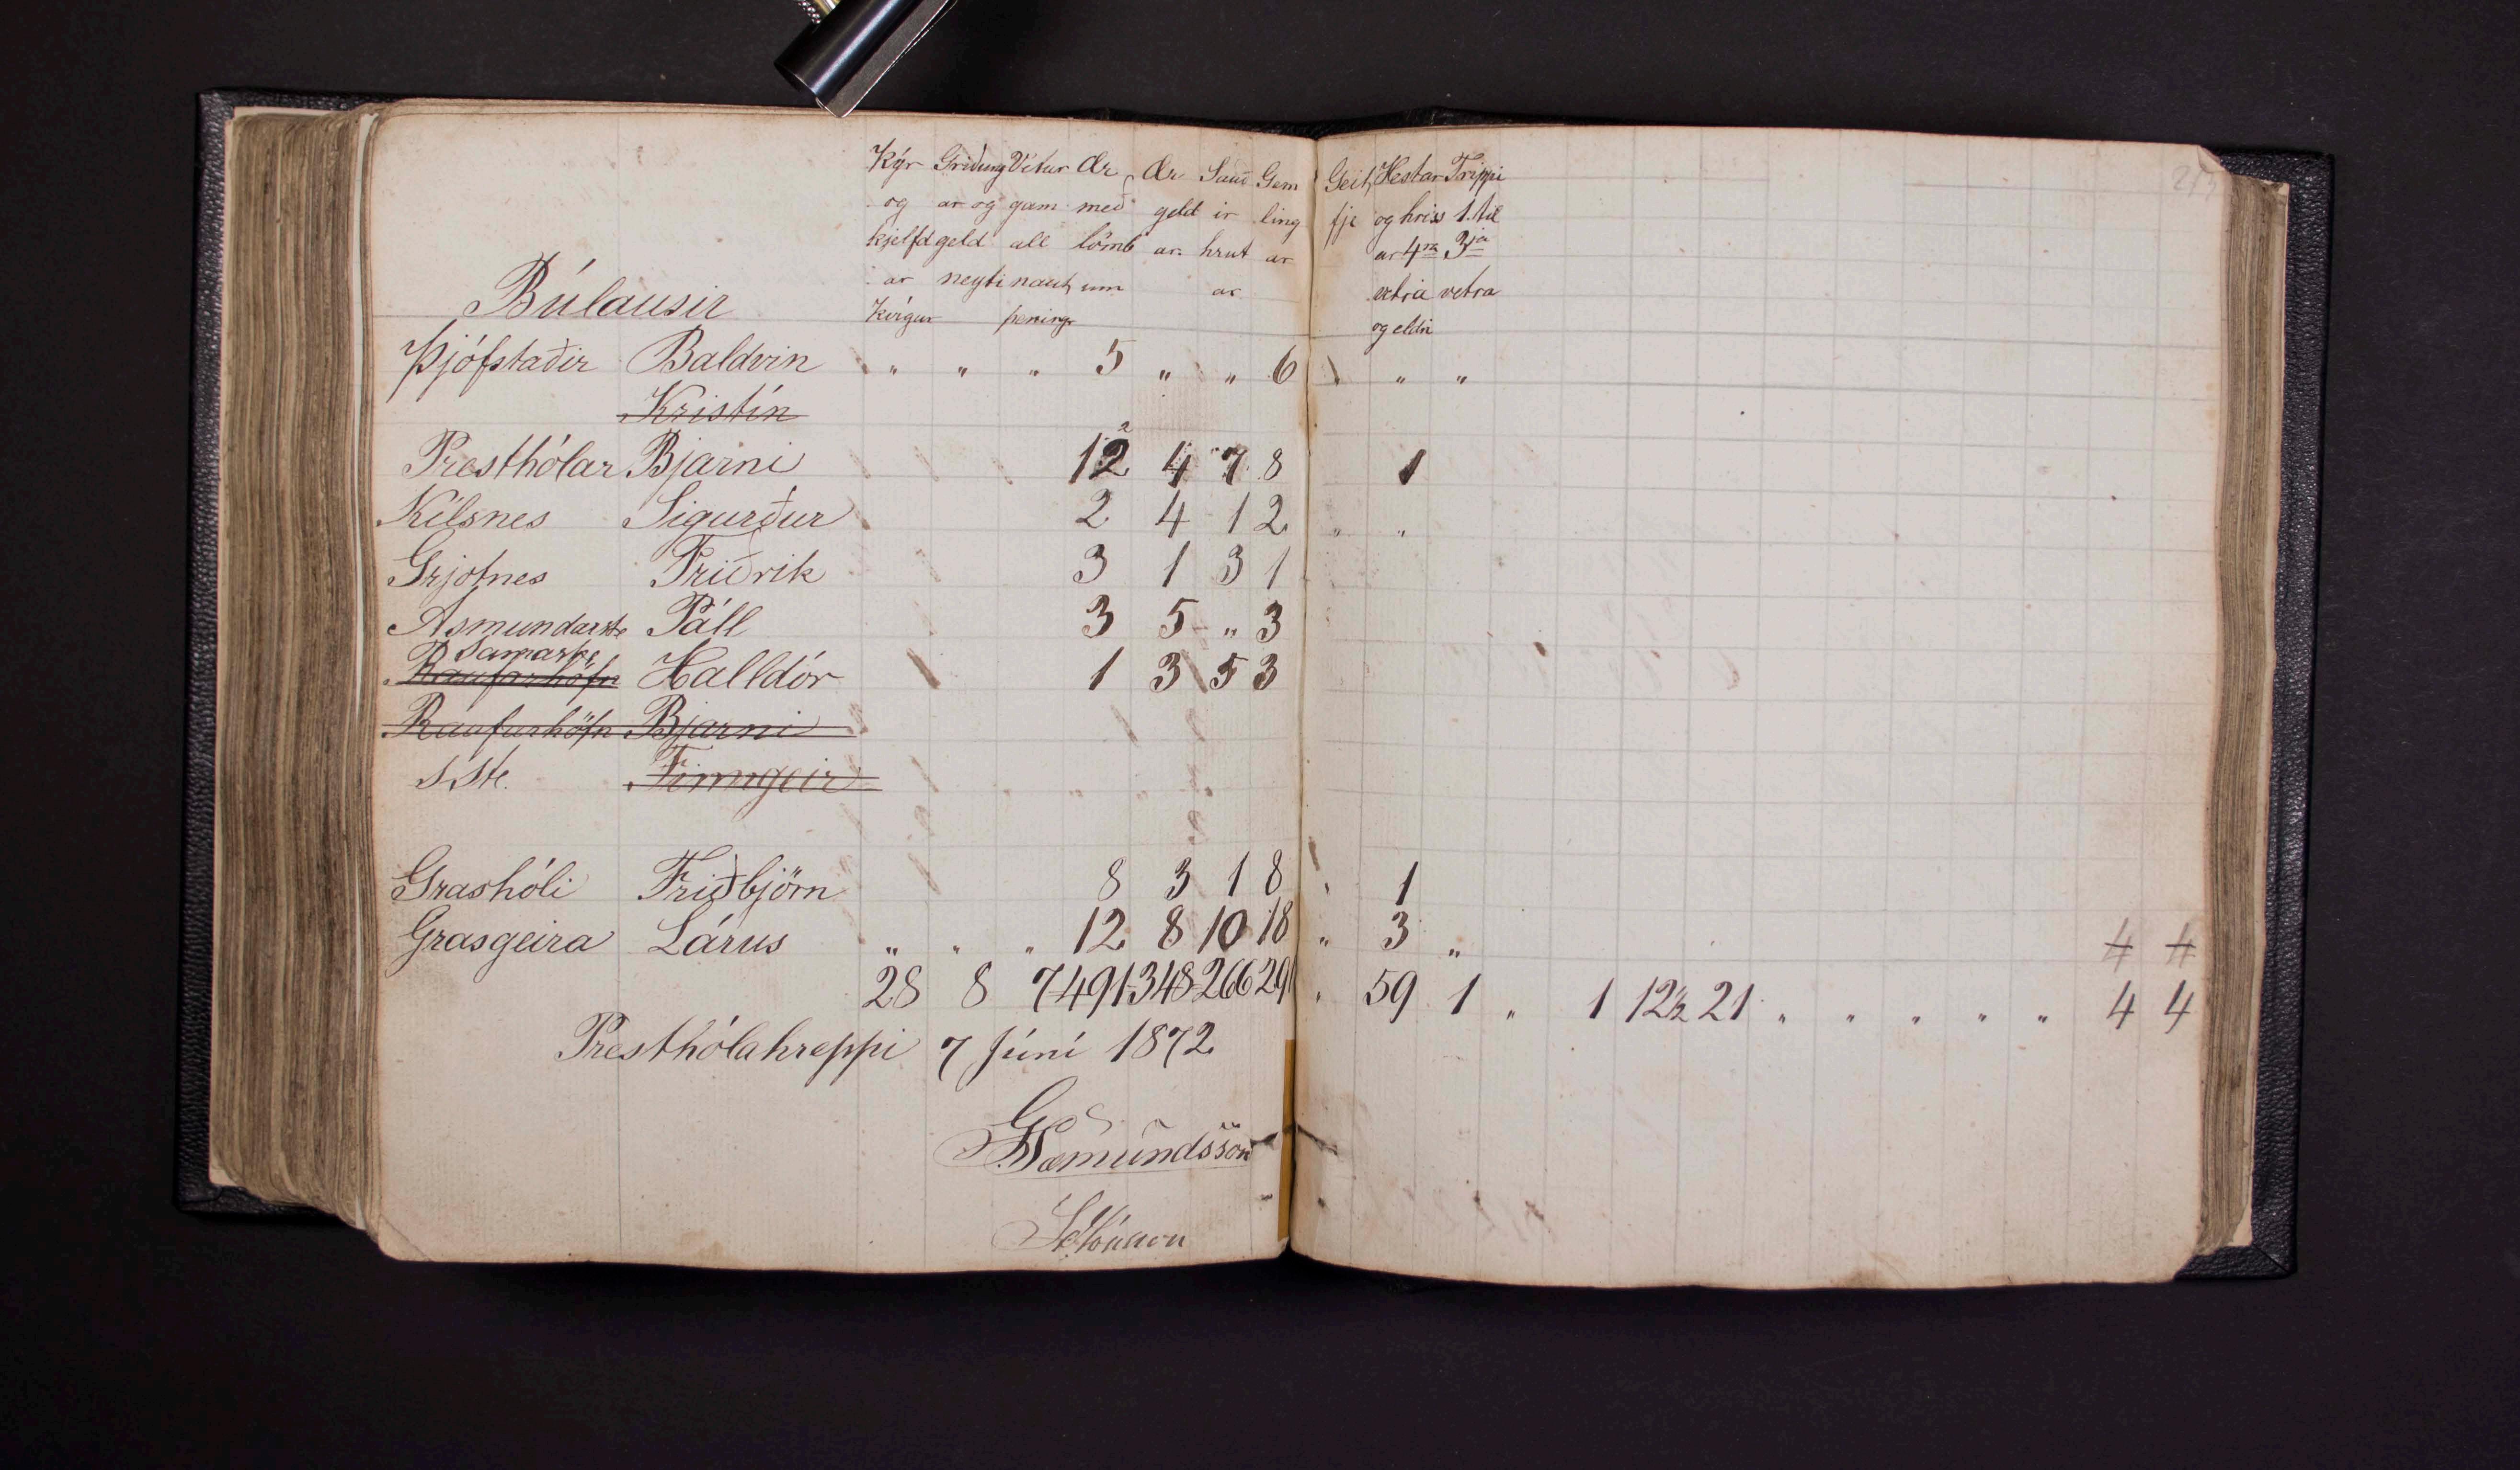 Kýr Griðung Vetur Ær Ær Sauð Gem Geit Hestar Trippi
og ar og gam með geld ir ling fje og hriss 1. til
kjelfd geld all lömb ar hrut ar ar 4ra 3ja
ar neyti naut um ar vetra vetra
Búlausir Kvígur pening og eldri
Þjófstaðir Baldvin " " " 5 " " 6 " "
Kristín
Presthólar Bjarni 12 2 4 7 8 1
Kílsnes Sigurður 2 4 1 2 " "
Grjotnes Friðrik 3 1 3 1
Asmundarste Páll 3 5 " 3
Raufarhöfn Halldór 1 3 5 3
Raufarhöfn Bjarni
S.ste. Finngeir
Grashóli Friðbjörn 8 3 1 8 " 1
Grasgeira Lárus " " " 12 8 10 18 " 3 " 4 4
28 8 7 491 348 266 291 " 59 1 " 1 12½ 21 " " " " " 4 4
Presthólahreppi 7 Júní 1872